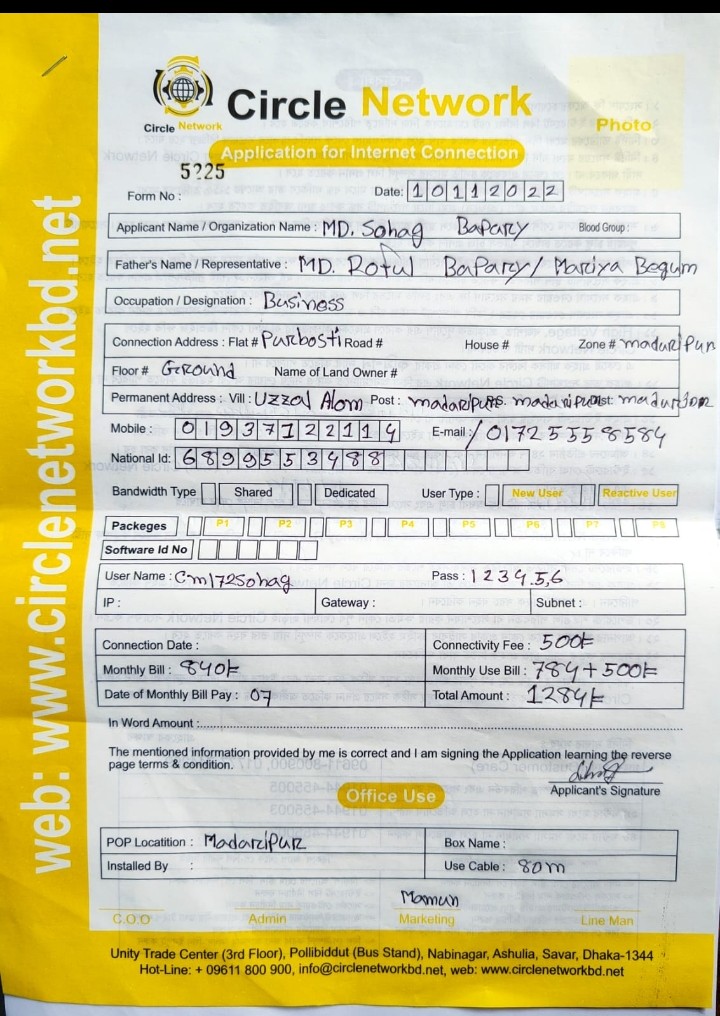 Circle Network
Circle Network
Photo
Application for Internet Connection
5225
Form No :
Date: 10112022
Applicant Name / Organization Name : MD. Sohag Bapary Blood Group :
Father's Name / Representative : MD. Rotul Bapary/ Mariya Begum
Occupation / Designation : Business
Connection Address : Flat # Purbosti Road # House # Zone # madaripur
Floor # Ground Name of Land Owner #
Permanent Address : Vill : Uzzal Alom Post : madaripur P.S. madaripur Dist:
Mobile : 01937122114 E-mail : / 01725558584
National Id: 6899553488
Bandwidth Type Shared Dedicated User Type : New User Reactive User
Packeges P1 P2 P3 P4 P5 P6 P7 P8
Software Id No
User Name : Cm172Sohag Pass : 123456
IP : Gateway : Subnet :
Connection Date : Connectivity Fee : 500/=
Monthly Bill : 840/= Monthly Use Bill : 784+500/=
Date of Monthly Bill Pay : 07 Total Amount : 1284/=
In Word Amount :
The mentioned information provided by me is correct and I am signing the Application learning the reverse
page terms & condition.
Applicant's Signature
Office Use
POP Locatition : Madaripur Box Name :
Installed By : Use Cable : 80m
Mamun
C.O.O Admin Marketing Line Man
Unity Trade Center (3rd Floor), Pollibiddut (Bus Stand), Nabinagar, Ashulia, Savar, Dhaka-1344
Hot-Line: + 09611 800 900, info@circlenetworkbd.net, web: www.circlenetworkbd.net
web: www.circlenetworkbd.net